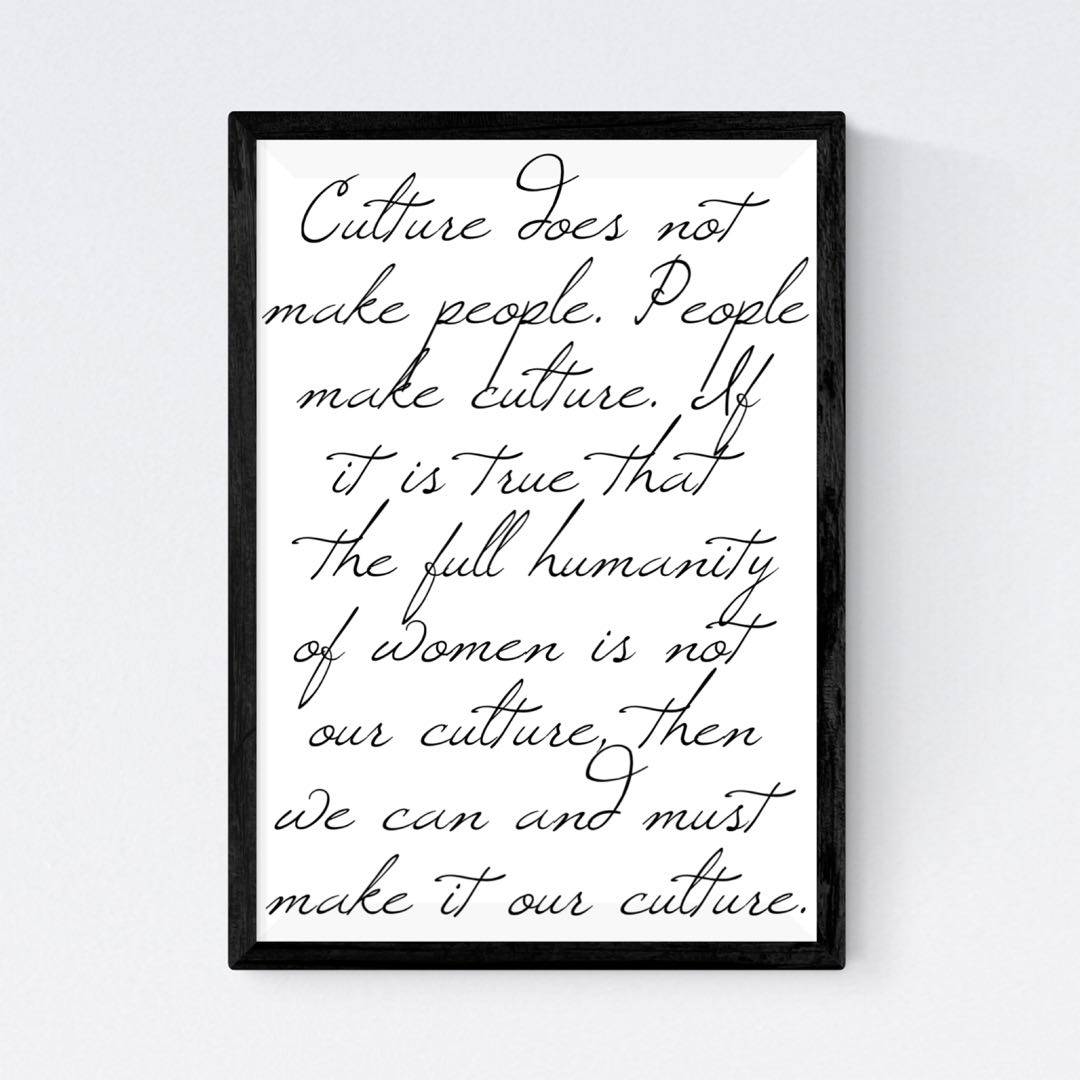 Culture does not
make people. People
make culture. If
it is true that
the full humanity
of women is not
our culture, then
we can and must
make it our culture.